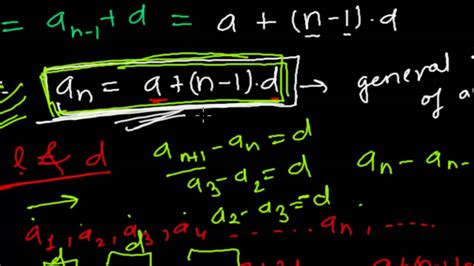 = aₙ₋₁ + d = a + (n-1)·d
aₙ = a + (n-1)·d → general
of a
l & d aₙ₊₁ - aₙ = d aₙ - aₙ₋
a₃ - a₂ = d
a₂ - a₃ = d
a₁, a₂, a₃, a₄ ...... aₙ, ......
d d